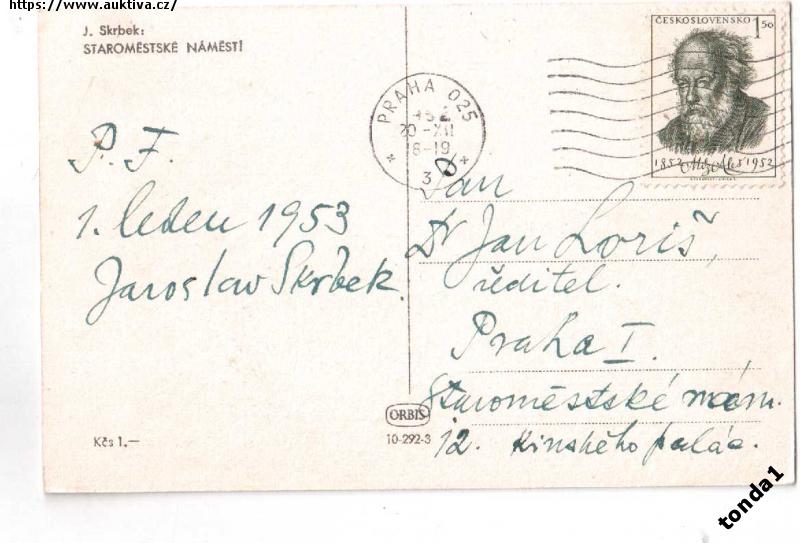 https://www.auktiva.cz/
J. Skrbek:
STAROMĚSTSKÉ NÁMĚSTÍ
P. F.
1. leden 1953
Jaroslav Skrbek.
Kčs 1.—
ORBIS
10-292-3
PRAHA 025
20-XII
18-19
3
ČESKOSLOVENSKO 1 50
1852 1952
Pan
Dr Jan Loriš,
ředitel.
Praha I.
Staroměstské nám.
12. Kinského palác.
tonda1